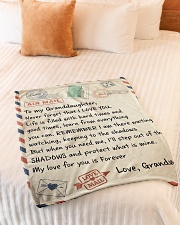 AIR MAIL
To my Granddaughter,
Never forget that I LOVE YOU.
Life is filled with hard times and
good times, learn from everything
you can. REMEMBER! I am there waiting
watching, keeping to the shadows.
But when you need me, I'll step out of the
SHADOWS and protect what is mine.
My love for you is Forever
Love, Grandma
LOVE
MAIL